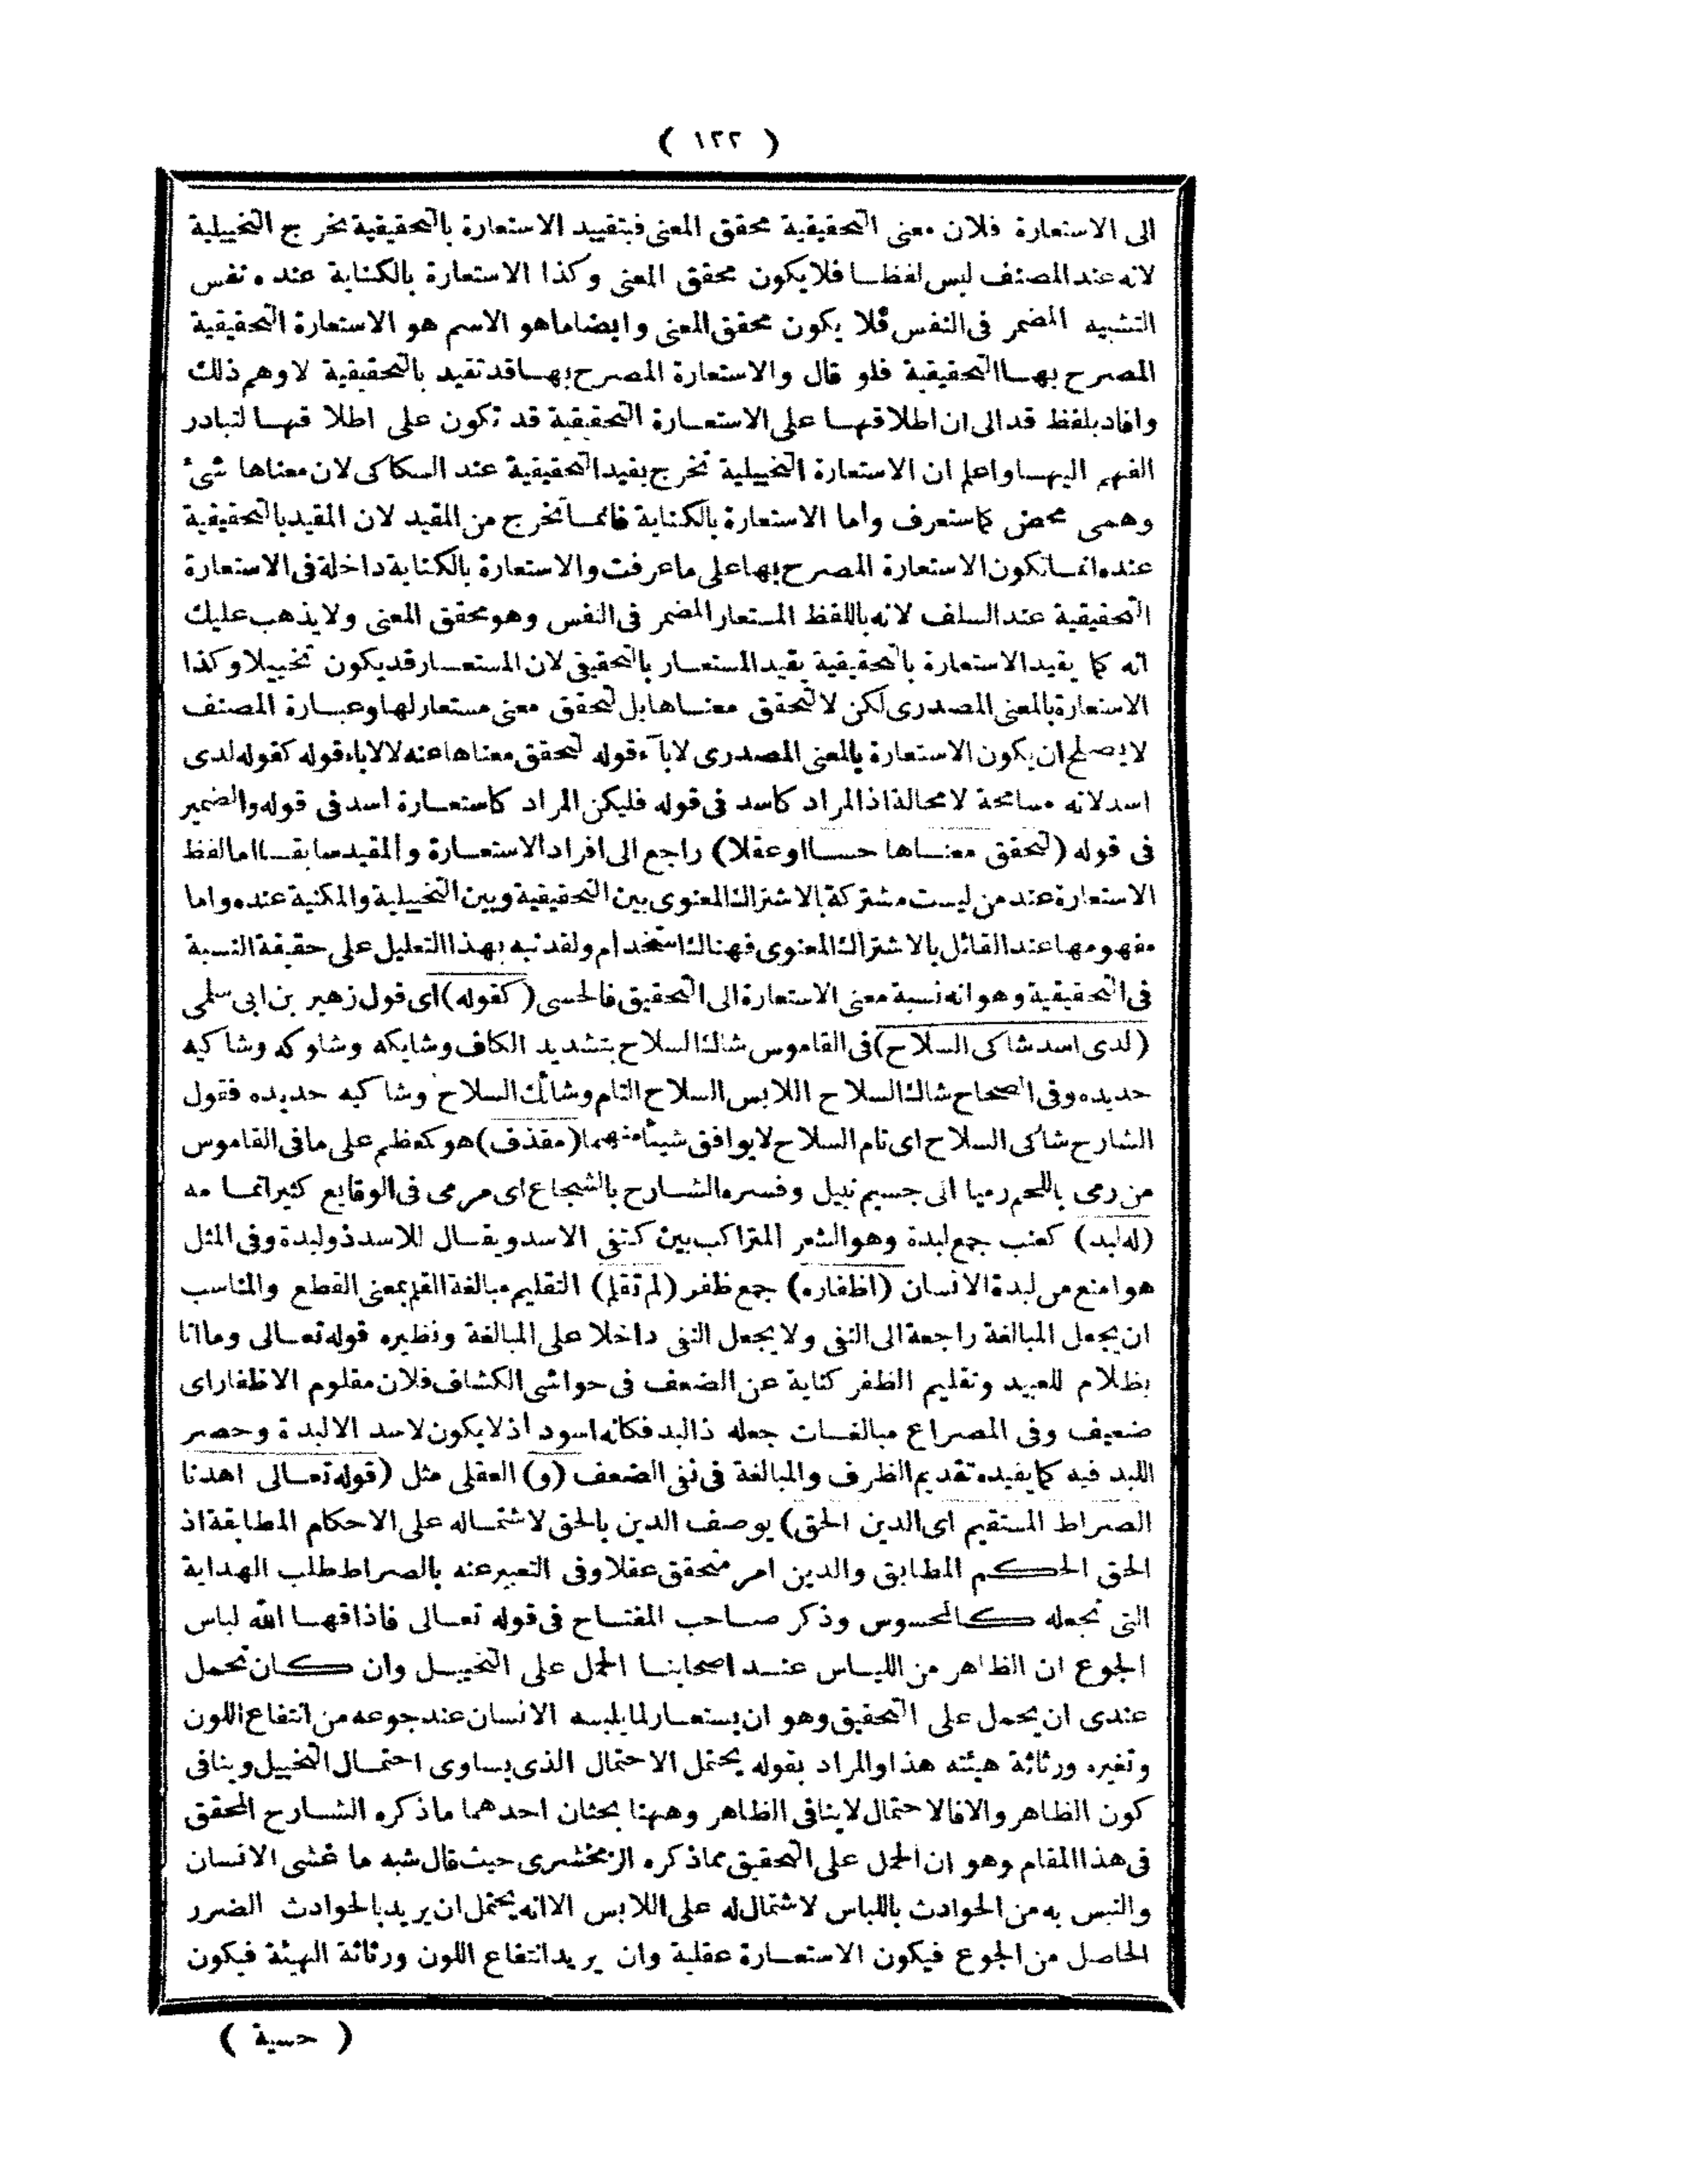 ( ١٢٢ )
الى الاستعارة فلان معنى التحقيقية محقق المعنى فبتقييد الاستعارة بالتحقيقية يخرج التخييلية
لانه عند المصنف ليس لفظا فلا يكون محقق المعنى وكذا الاستعارة بالكناية عنده نفس
التشبيه المضمر فى النفس فلا يكون محقق المعنى وايضا ماهو الاسم هو الاستعارة التحقيقية
المصرح بها التحقيقية فلو قال والاستعارة المصرح بها قد تقيد بالتحقيقية لاوهم ذلك
وافاد بلفظ قد الى ان اطلاقها على الاستعارة التحقيقية قد تكون على اطلا قها لتبادر
الفهم اليها واعلم ان الاستعارة التخييلية تخرج بقيد التحقيقية عند السكاكى لان معناها شئ
وهمى محض كما ستعرف واما الاستعارة بالكناية فانما تخرج من المقيد لان المقيد بالتحقيقية
عنده انما تكون الاستعارة المصرح بها على ما عرفت والاستعارة بالكناية داخلة فى الاستعارة
التحقيقية عند السلف لانه باللفظ المستعار المضمر فى النفس وهو محقق المعنى ولا يذهب عليك
انه كما يقيد الاستعارة بالتحقيقية يقيد المستعار بالتحقيقى لان المستعار قد يكون تخييلا وكذا
الاستعارة بالمعنى المصدرى لكن لا لتحقق معناها بل لتحقق معنى مستعار لها وعبارة المصنف
لا يصلح ان يكون الاستعارة بالمعنى المصدرى لاباء قوله لتحقق معناها عنه لا لاباء قوله كقوله لدى
اسد لانه مسامحة لا محالة اذ المراد كاسد فى قوله فليكن المراد كاستعارة اسد فى قوله والضمير
فى قوله (لتحقق معناها حسا او عقلا) راجع الى افراد الاستعارة والمقيد سابقا اما لفظ
الاستعارة عند من ليست مشتركة بالاشتراك المعنوى بين التحقيقية وبين التخييلية والمكنية عنده واما
مفهومها عند القائل بالاشتراك المعنوى فهناك استخدام ولقد نبه بهذا التعليل على حقيقة النسبة
فى التحقيقية وهو انه نسبة معنى الاستعارة الى التحقيق فالحسى (كقوله) اى قول زهير بن ابى سلمى
(لدى اسد شاكى السلاح) فى القاموس شاك السلاح بتشديد الكاف وشايكه وشاوكه وشاكيه
حديده وفى الصحاح شاك السلاح اللابس السلاح التام وشائك السلاح وشاكيه حديده فقول
الشارح شاكى السلاح اى تام السلاح لا يوافق شيئا منهما (مقذف) هو كمعظم على ما فى القاموس
من رمى باللحم رميا اى جسيم نبيل وفسره الشارح بالشجاع اى مرمى فى الوقايع كثيرا تمامه
(له لبد) كعنب جمع لبدة وهو الشعر المتراكب بين كتفى الاسد ويقال للاسد ذو لبدة وفى المثل
هو امنع من لبدة الانسان (اظفاره) جمع ظفر (لم تقلم) التقليم مبالغة القلم بمعنى القطع والمناسب
ان يجعل المبالغة راجعة الى النفى ولا يجعل النفى داخلا على المبالغة ونظيره قوله تعالى وما انا
بظلام للعبيد وتقليم الظفر كناية عن الضعف فى حواشى الكشاف فلان مقلوم الاظفار اى
ضعيف وفى المصراع مبالغات جعله ذالبد فكانه اسود اذ لا يكون لاسد الا لبدة وحصر
اللبد فيه كما يفيده تقديم الظرف والمبالغة فى نفى الضعف (و) العقلى مثل (قوله تعالى اهدنا
الصراط المستقيم اى الدين الحق) يوصف الدين بالحق لاشتماله على الاحكام المطابقة اذ
الحق الحكم المطابق والدين امر متحقق عقلا وفى التعبير عنه بالصراط طلب الهداية
التى تجعله كالمحسوس وذكر صاحب المفتاح فى قوله تعالى فاذاقها الله لباس
الجوع ان الظاهر من اللباس عند اصحابنا الحمل على التخييل وان كان تحمل
عندى ان يحمل على التحقيق وهو ان يستعار لما يلبسه الانسان عند جوعه من انتفاع اللون
وتغيره ورثاثة هيئته هذا والمراد بقوله يحتمل الاحتمال الذى يساوى احتمال التخييل وينافى
كون الظاهر والا فالاحتمال لا ينافى الظاهر وههنا بحثان احدهما ما ذكره الشارح المحقق
فى هذا المقام وهو ان الحمل على التحقيق مما ذكره الزمخشرى حيث قال شبه ما غشى الانسان
والتبس به من الحوادث باللباس لاشتماله على اللابس الا انه يحتمل ان يريد بالحوادث الضرر
الحاصل من الجوع فيكون الاستعارة عقلية وان يريد انتفاع اللون ورثاثة الهيئة فيكون
( حسية )